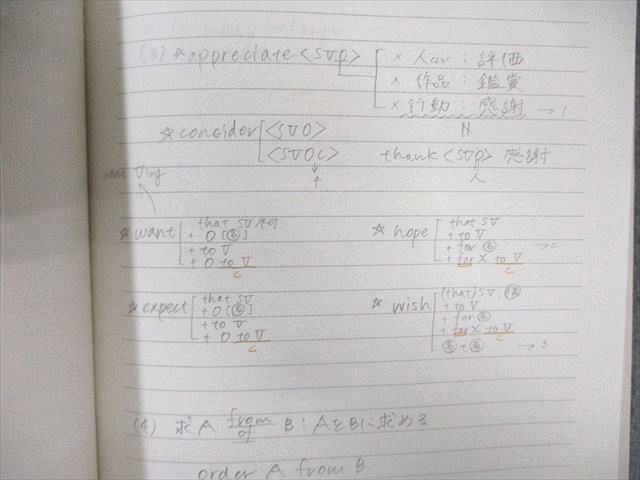 (3) ☆appreciate <SVO> × 人 : 評価
× 作品 : 鑑賞
× 行動 : 感謝 → 1
☆consider <SVO>
<SVOC> thank <SVO> 感謝
人
Ving
that SV 不可
☆want + O [名]
+ to V
+ O to V
C
that SV
☆hope + to V
+ for 名 → 2
+ for X to V
C
that SV
☆expect + O [名]
+ to V
+ O to V
C
(that) SV
☆wish + to V
+ for 名
+ for X to V
C
→ 3
(4) 求 A from B : AをBに求める
of
order A from B